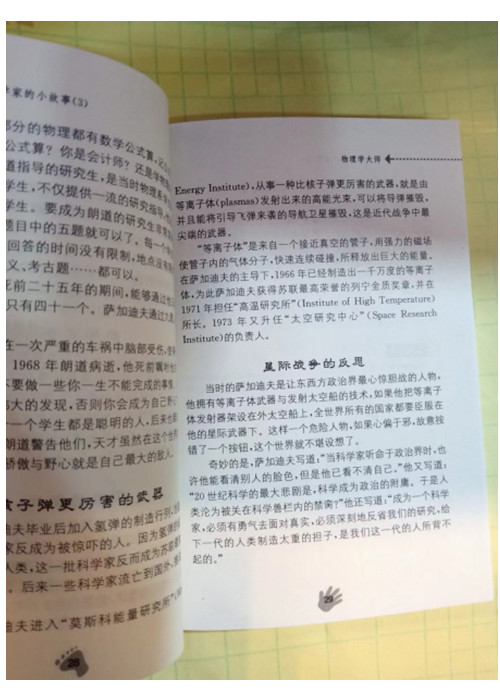 学家的小故事(3)
部分的物理都有数学公式算,
公式算? 你是会计师? 还是学物
道指导的研究生,是当时物理系
学生,不仅提供一流的研究指导,
学生。要成为朗道的研究生非常
题目中的五题就可以了。每一个
回答的时间没有限制,地点没有
义、考古题……都可以。
死前二十五年的期间,能够通过
只有四十一个。萨加迪夫通过
在一次严重的车祸中脑部受伤,
1968年朗道病危,他死前嘱咐
不要做一些你一生不能完成的事情
大的发现,否则你会成为自己野心
一个学生都是聪明的人,后来他
朗道警告他们,天才虽然在这个世
骄傲与野心就是自己最大的敌人。
核子弹更厉害的武器
迪夫毕业后加入氢弹的制造行列,
家反成为被惊吓的人。因为氢弹
人类,这一批科学家反而成为苏联
。后来一些科学家流亡到国外,
迪夫进入“莫斯科能量研究所”
28
物理学大师
Energy Institute),从事一种比核子弹更厉害的武器,就是由
等离子体(plasmas)发射出来的高能光束,可以将导弹摧毁,
并且能将引导飞弹来袭的导航卫星摧毁,这是近代战争中最
尖端的武器。
“等离子体”是来自一个接近真空的管子,用强力的磁场
使管子内的气体分子,快速连续碰撞,所释放出巨大的能量。
在萨加迪夫的主导下,1966年已经制造出一千万度的等离子
体,为此萨加迪夫获得苏联最高荣誉的列宁金质奖章,并在
1971年担任“高温研究所”(Institute of High Temperature)
所长。1973年又升任“太空研究中心”(Space Research
Institute)的负责人。
星际战争的反思
当时的萨加迪夫是让东西方政治界最心惊胆战的人物,
他拥有等离子体武器与发射太空船的技术,如果他把等离子
体发射器架设在外太空船上,全世界所有的国家都要臣服在
他的星际武器下。这样一个危险人物,如果心偏于邪,故意按
错了一个按钮,这个世界就不堪设想了。
奇妙的是,萨加迪夫写道:“当科学家听命于政治界时,也
许他能看清别人的脸色,但是他已看不清自己。”他又写道:
“20世纪科学的最大悲剧是,科学成为政治的附庸。于是人
类沦为被关在科学兽栏内的禁脔?”他还写道:“成为一个科学
家,必须有勇气去面对真实,必须深刻地反省我们的研究,给
下一代的人类制造太重的担子,是我们这一代的人所背不
起的。”
29